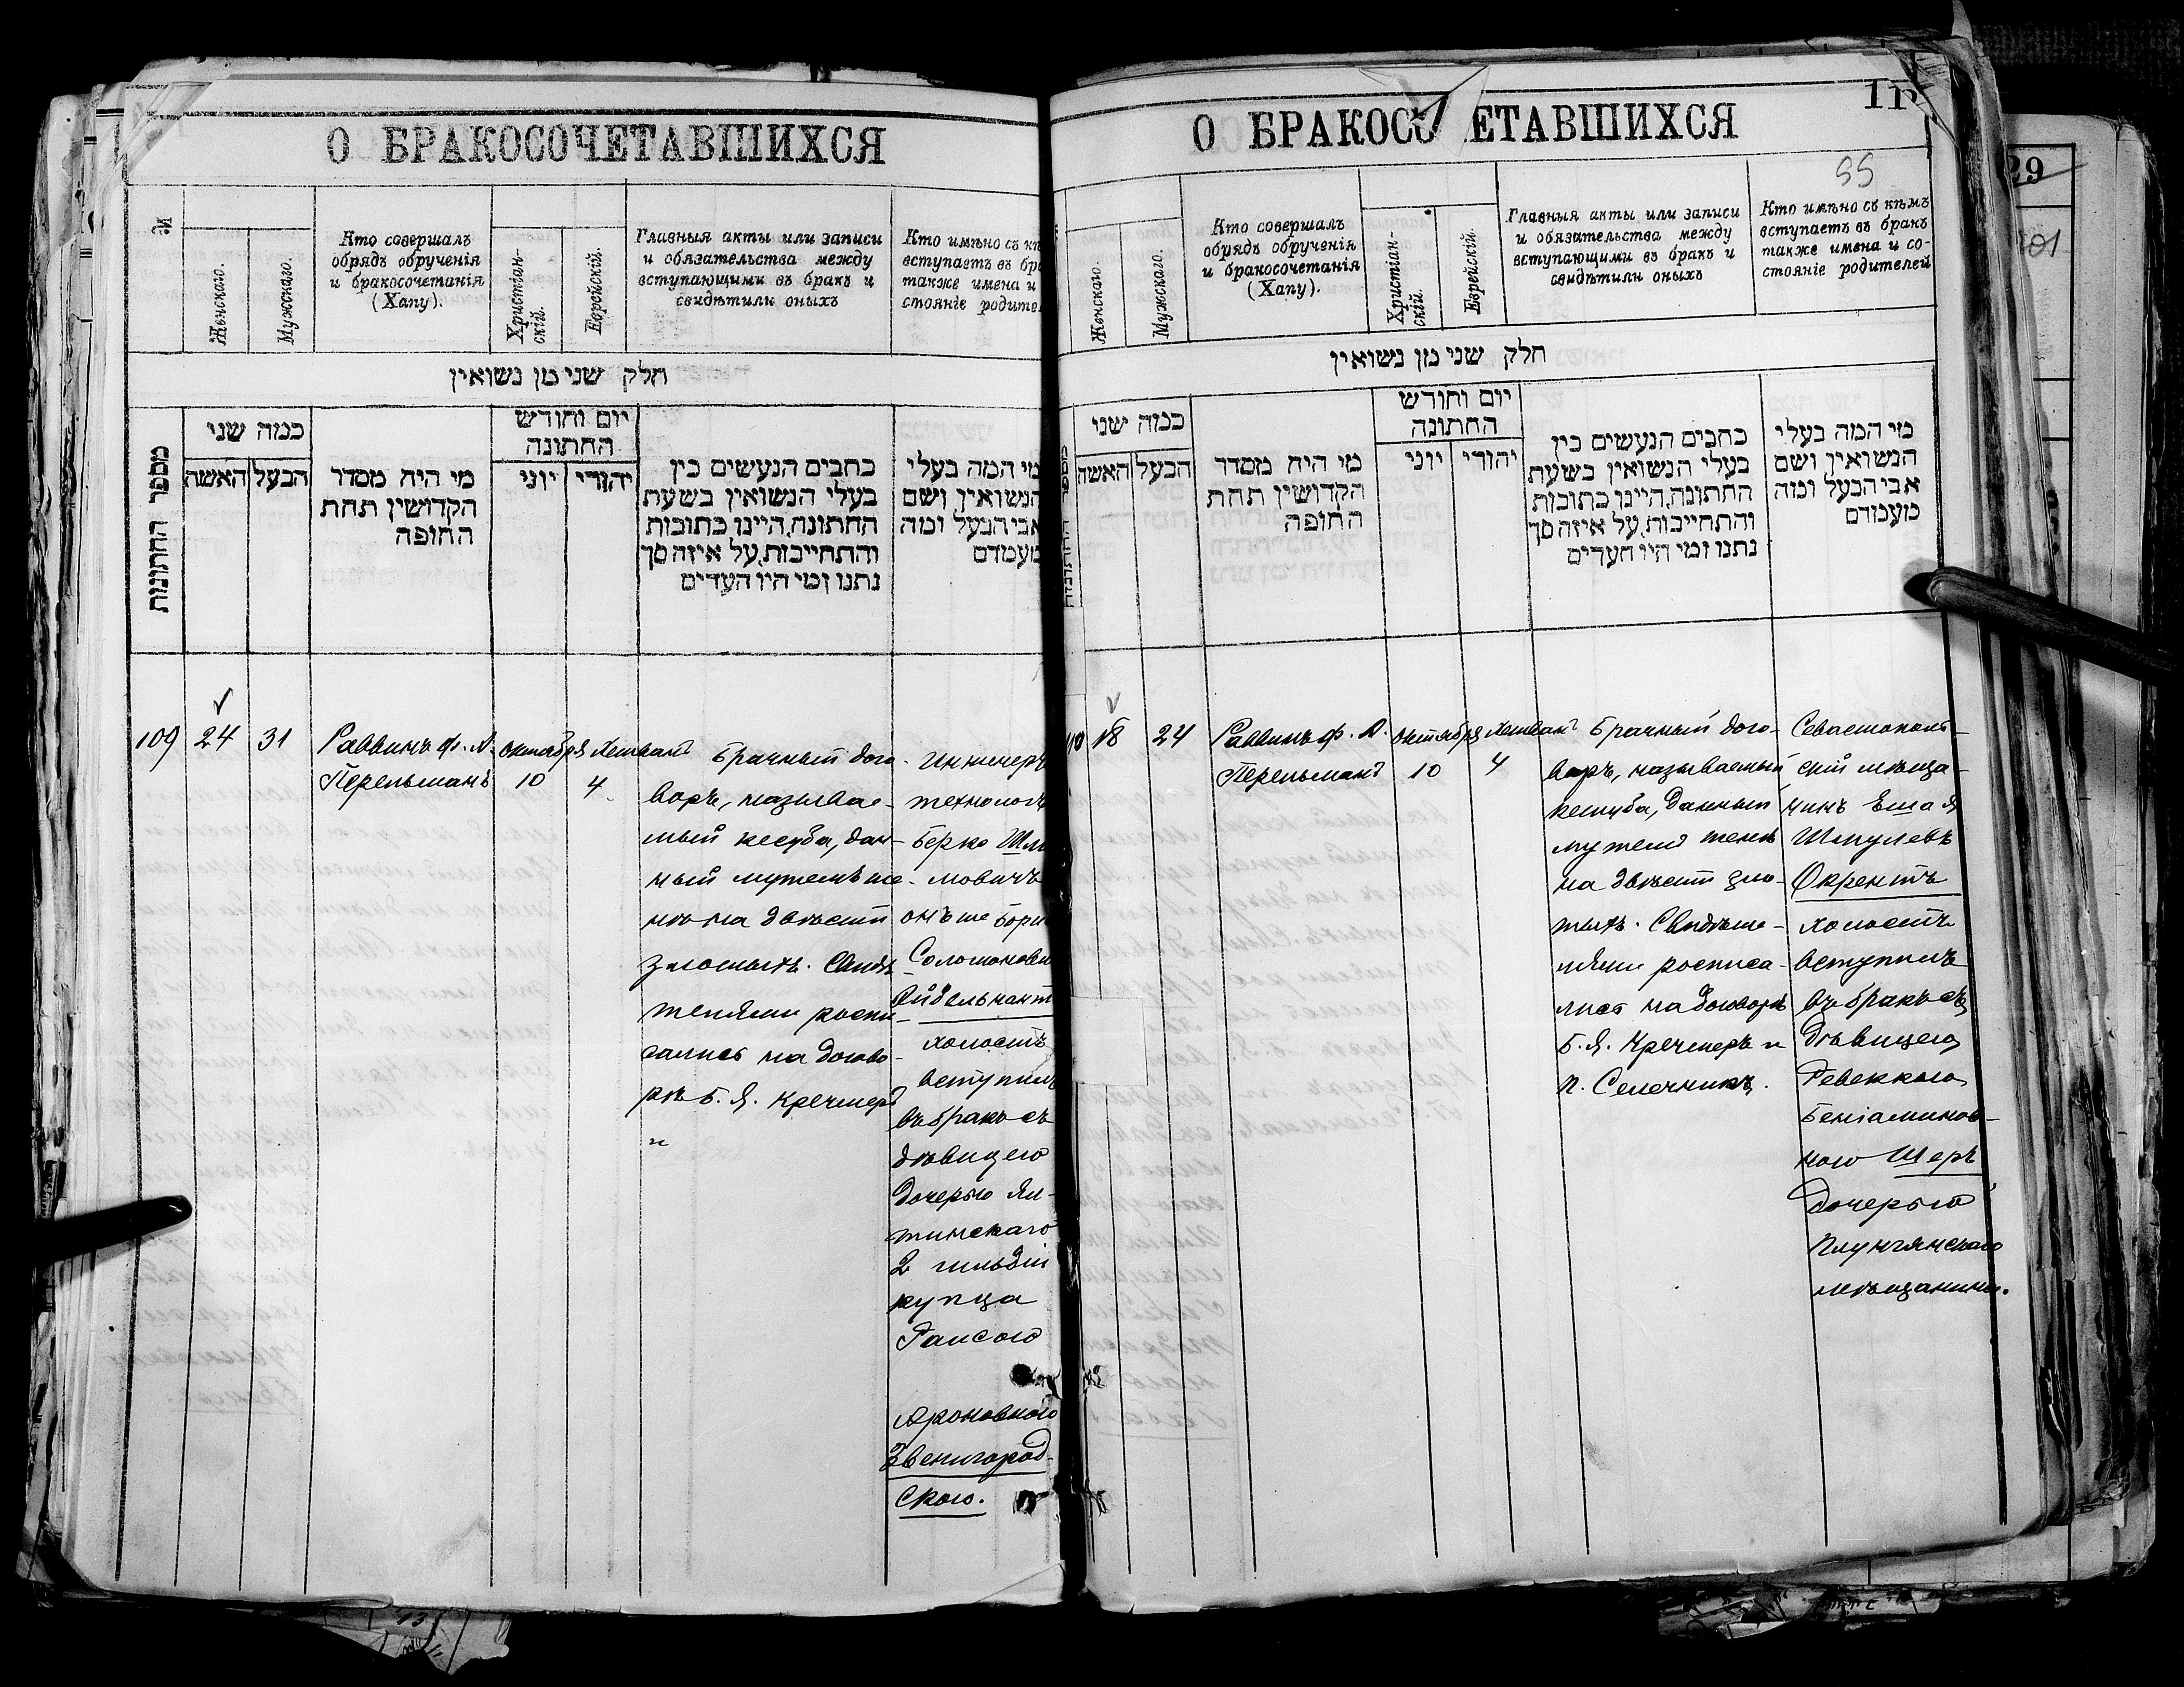 О БРАКОСОЧЕТАВШИХСЯ
№
Женскаго.
Мужскаго.
Кто совершалъ
обрядъ обрученія
и бракосочетанія
(Хапу).
Христіан-
скій.
Еврейскій
Главныя акты или записи
и обязательства между
вступающими въ бракъ и
свидѣтили оныхъ
Кто имѣно съ кѣ
вступаетъ въ бра
также имена и
стояніе родител
חלק שני מן נשואין
מספר החתונות
כמה שני
האשה
הבעל
מי היה מסדר
הקדושין תחת
החופה
יום וחודש
החתונה
יוני
יהודי
כתבים הנעשים בין
בעלי הנשואין בשעת
החתונה, היינו כתובות
והתחייבות, על איזה סך
נתנו ומי היו העדים
מי המה בעלי
הנשואין ושם
אבי הבעל ומה
מעמדם
109
24
31
Раввинъ Ф. А.
Перельманъ
Октября
10
Хешванъ
4
Брачный дого-
воръ, называе-
мый кесуба, дан-
ный мужемъ же-
нѣ на двѣсти
злотыхъ. Свидѣ
телями роспи-
сались на догово-
рѣ Б. Я. Кречмеръ
и
Инженеръ
технологъ
Берко Шли
мовичъ
онъ же Бори
Соломонови
Айдельнант
холостъ
вступилъ
въ бракъ съ
дѣвицею
дочерью Ял-
тинскаго
2 гильдіи
купца
Раисою
Ароновною
Звенигород-
скою.
О БРАКОСО ЕТАВШИХСЯ
11
55
Женскаго.
Мужскаго.
Кто совершалъ
обрядъ обрученія
и бракосочетанія
(Хапу).
Христіан-
скій.
Еврейскій.
Главныя акты или записи
и обязательства между
вступающими въ бракъ и
свидѣтили оныхъ
Кто имѣно съ кѣмъ
вступаетъ въ бракъ
также имена и со-
стояніе родителей
חלק שני מן נשואין
כמה שני
האשה
הבעל
מי היה מסדר
הקדושין תחת
החופה
יום וחודש
החתונה
יוני
יהודי
כתבים הנעשים בין
בעלי הנשואין בשעת
החתונה, היינו כתובות
והתחייבות, על איזה סך
נתנו ומי היו העדים
מי המה בעלי
הנשואין ושם
אבי הבעל ומה
מעמדם
10
18
24
Раввинъ Ф. А.
Перельманъ
Октября
10
Хешванъ
4
Брачный дого-
воръ, называемый
кесуба, данный
мужемъ женѣ
на двѣсти зло-
тыхъ. Свидѣте-
лями росписа-
лись на договорѣ
Б. Я. Кречмеръ и
П. Селечникъ.
Севастополь-
скій мѣща-
нинъ Ешая
Шмулевъ
Окрентъ
холостъ
вступилъ
въ бракъ съ
дѣвицею
Ревеккою
Беніаминов-
ною Шеръ
дочерью
Плунгянскаго
мѣщанина.
29
101